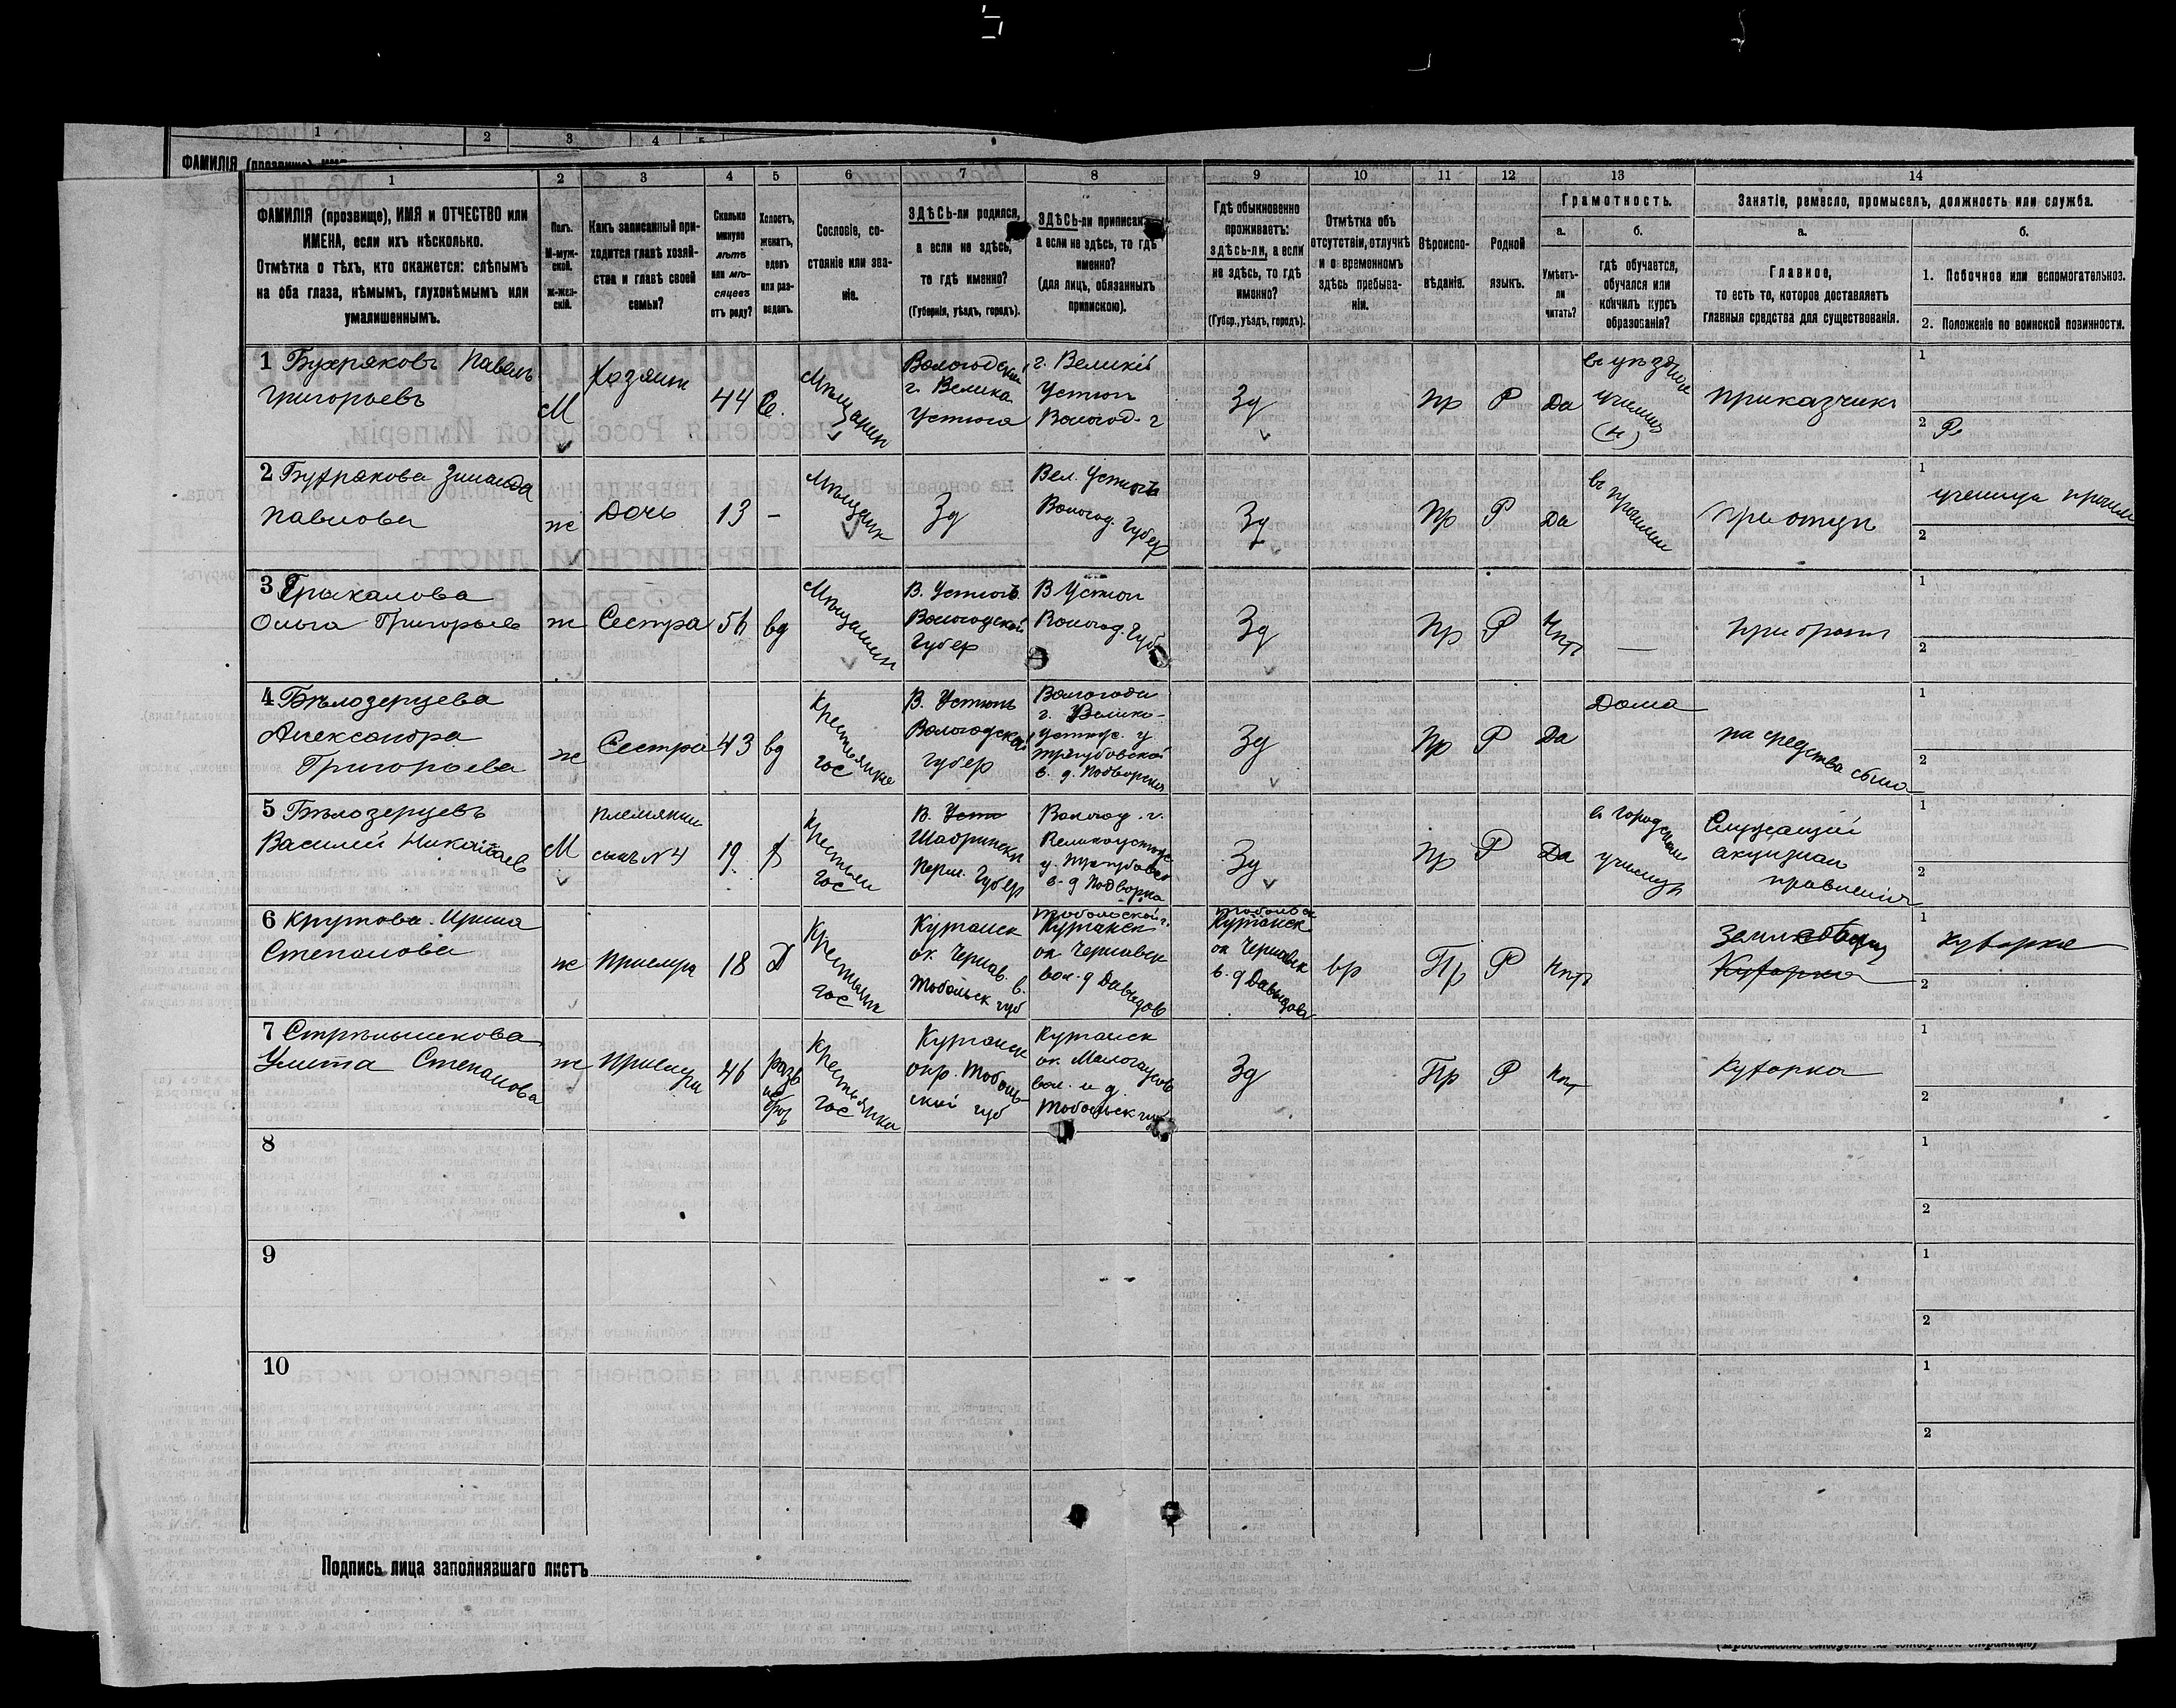 1 2 3 4
ФАМИЛІЯ (прозвище)
1 2 3 4 5 6 7 8 9 10 11 12 13 14
ФАМИЛІЯ (прозвище), ИМЯ и ОТЧЕСТВО или
ИМЕНА, если ихъ нѣсколько.
Отмѣтка о тѣхъ, кто окажется: слѣпымъ
на оба глаза, нѣмымъ, глухонѣмымъ или
умалишеннымъ.
Полъ.
М-муж-
ской.
ж-жен-
скій.
Какъ записанный при-
ходится главѣ хозяй-
ства и главѣ своей
семьи?
Сколько
минуло
лѣтъ
или мѣ-
сяцевъ
отъ роду?
Холостъ,
женатъ,
вдовъ
или раз-
веденъ.
Сословіе, со-
стояніе или зва-
ніе.
ЗДѢСЬ-ли родился,
а если не здѣсь,
то гдѣ именно?
(Губернія, уѣздъ, городъ).
ЗДѢСЬ-ли приписанъ
а если не здѣсь, то гдѣ
именно?
(для лицъ, обязанныхъ
припискою).
Гдѣ обыкновенно
проживаетъ:
здѣсь-ли, а если
не здѣсь, то гдѣ
именно?
(Губер., уѣздъ, городъ).
Отмѣтка объ
отсутствіи, отлучкѣ
и о временномъ
здѣсь пребыва-
ніи.
Вѣроиспо-
вѣданіе.
Родной
языкъ.
Грамотность.
а.
Умѣетъ-
ли
читать?
б.
гдѣ обучается,
обучался или
кончилъ курсъ
образованія?
Занятіе, ремесло, промыселъ, должность или служба.
а.
Главное,
то есть то, которое доставляетъ
главныя средства для существованія.
б.
1. Побочное или вспомогательное.
2. Положеніе по воинской повинности.
1 Бухряковъ Павелъ
Григорьевъ
М
Хозяин
44
Мѣщанин
Вологодской
г. Велика
Устюга
г. Великій
Устюг
Вологод. г
Зд
Пр
Р
Да
в уѣздном
училищ
(н)
приказчик
1
2 Р
2 Бухрякова Зинаида
Павлова
ж
Дочь
13
-
Мѣщанк
Зд
Вел. Устюгъ
Вологод. Губер
Зд
Пр
Р
Да
въ прогимн
При отцѣ
1
ученица прогим
2
3 Грыкалова
Ольга Григорьев
ж
Сестра
56
вд
Мѣщанин
В. Устюгъ
Вологодской
Губер
В Устюг
Вологод. Губ
Зд
Пр
Р
Нѣт
—
при брат
1
2
4 Бѣлозерцева
Александра
Григорьева
ж
Сестра
43
вд
Крестьянка
гос
В. Устюгъ
Вологодской
губер
Вологоди
г. Велико-
устюгс. у
Трегубовской
в. д. Подворска
Зд
Пр
Р
Да
Дома
на средства сына
1
2
5 Бѣлозерцевъ
Василій Николаев
М
племянник
сынъ N 4
19
х
Крестьян
гос
В. Усто
Шадринск
Перм. Губер
Вологод. г.
Великоустюгс
у. Трегубовс
в. д Подворка
Зд
Пр
Р
Да
в городском
училищ
Служащій
акцизнаго
правленія
1
2
6 Крутова Ирина
Степанова
ж
Прислуга
18
Д
Крестьян
гос
Курганск
ок. Чернав. в.
Тобольск губ
Тобольской г.
Курганск
ок Чернавск
вол. д Давыдов
Тобольск
Курганск
ок Чернавск
в. д Давыдова
вр
Пр
Р
Нѣт
Кухарка
1
кухарка
2
7 Стрѣльникова
Улита Степанова
ж
Прислуга
46
Крестьянка
гос
Курганск
окр. Тоболь-
ской губ
Курганск
ок.
вол. и д.
Тобольск губ
Зд
Пр
Р
Нѣт
Кухарка
1
2
8
1
2
9
1
2
10
1
2
Подпись лица заполнявшаго листъ